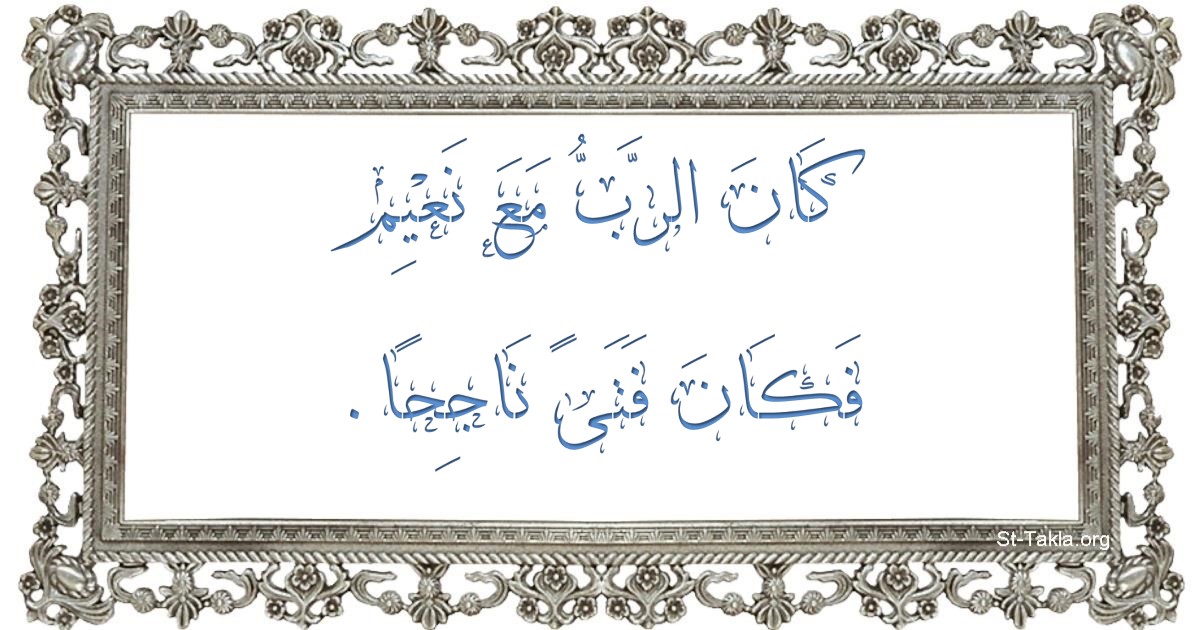 كَانَ الرَّبُّ مَعَ نَعِيْمِ
فَكَانَ فَتَىً نَاجِحًا .
St-Takla.org